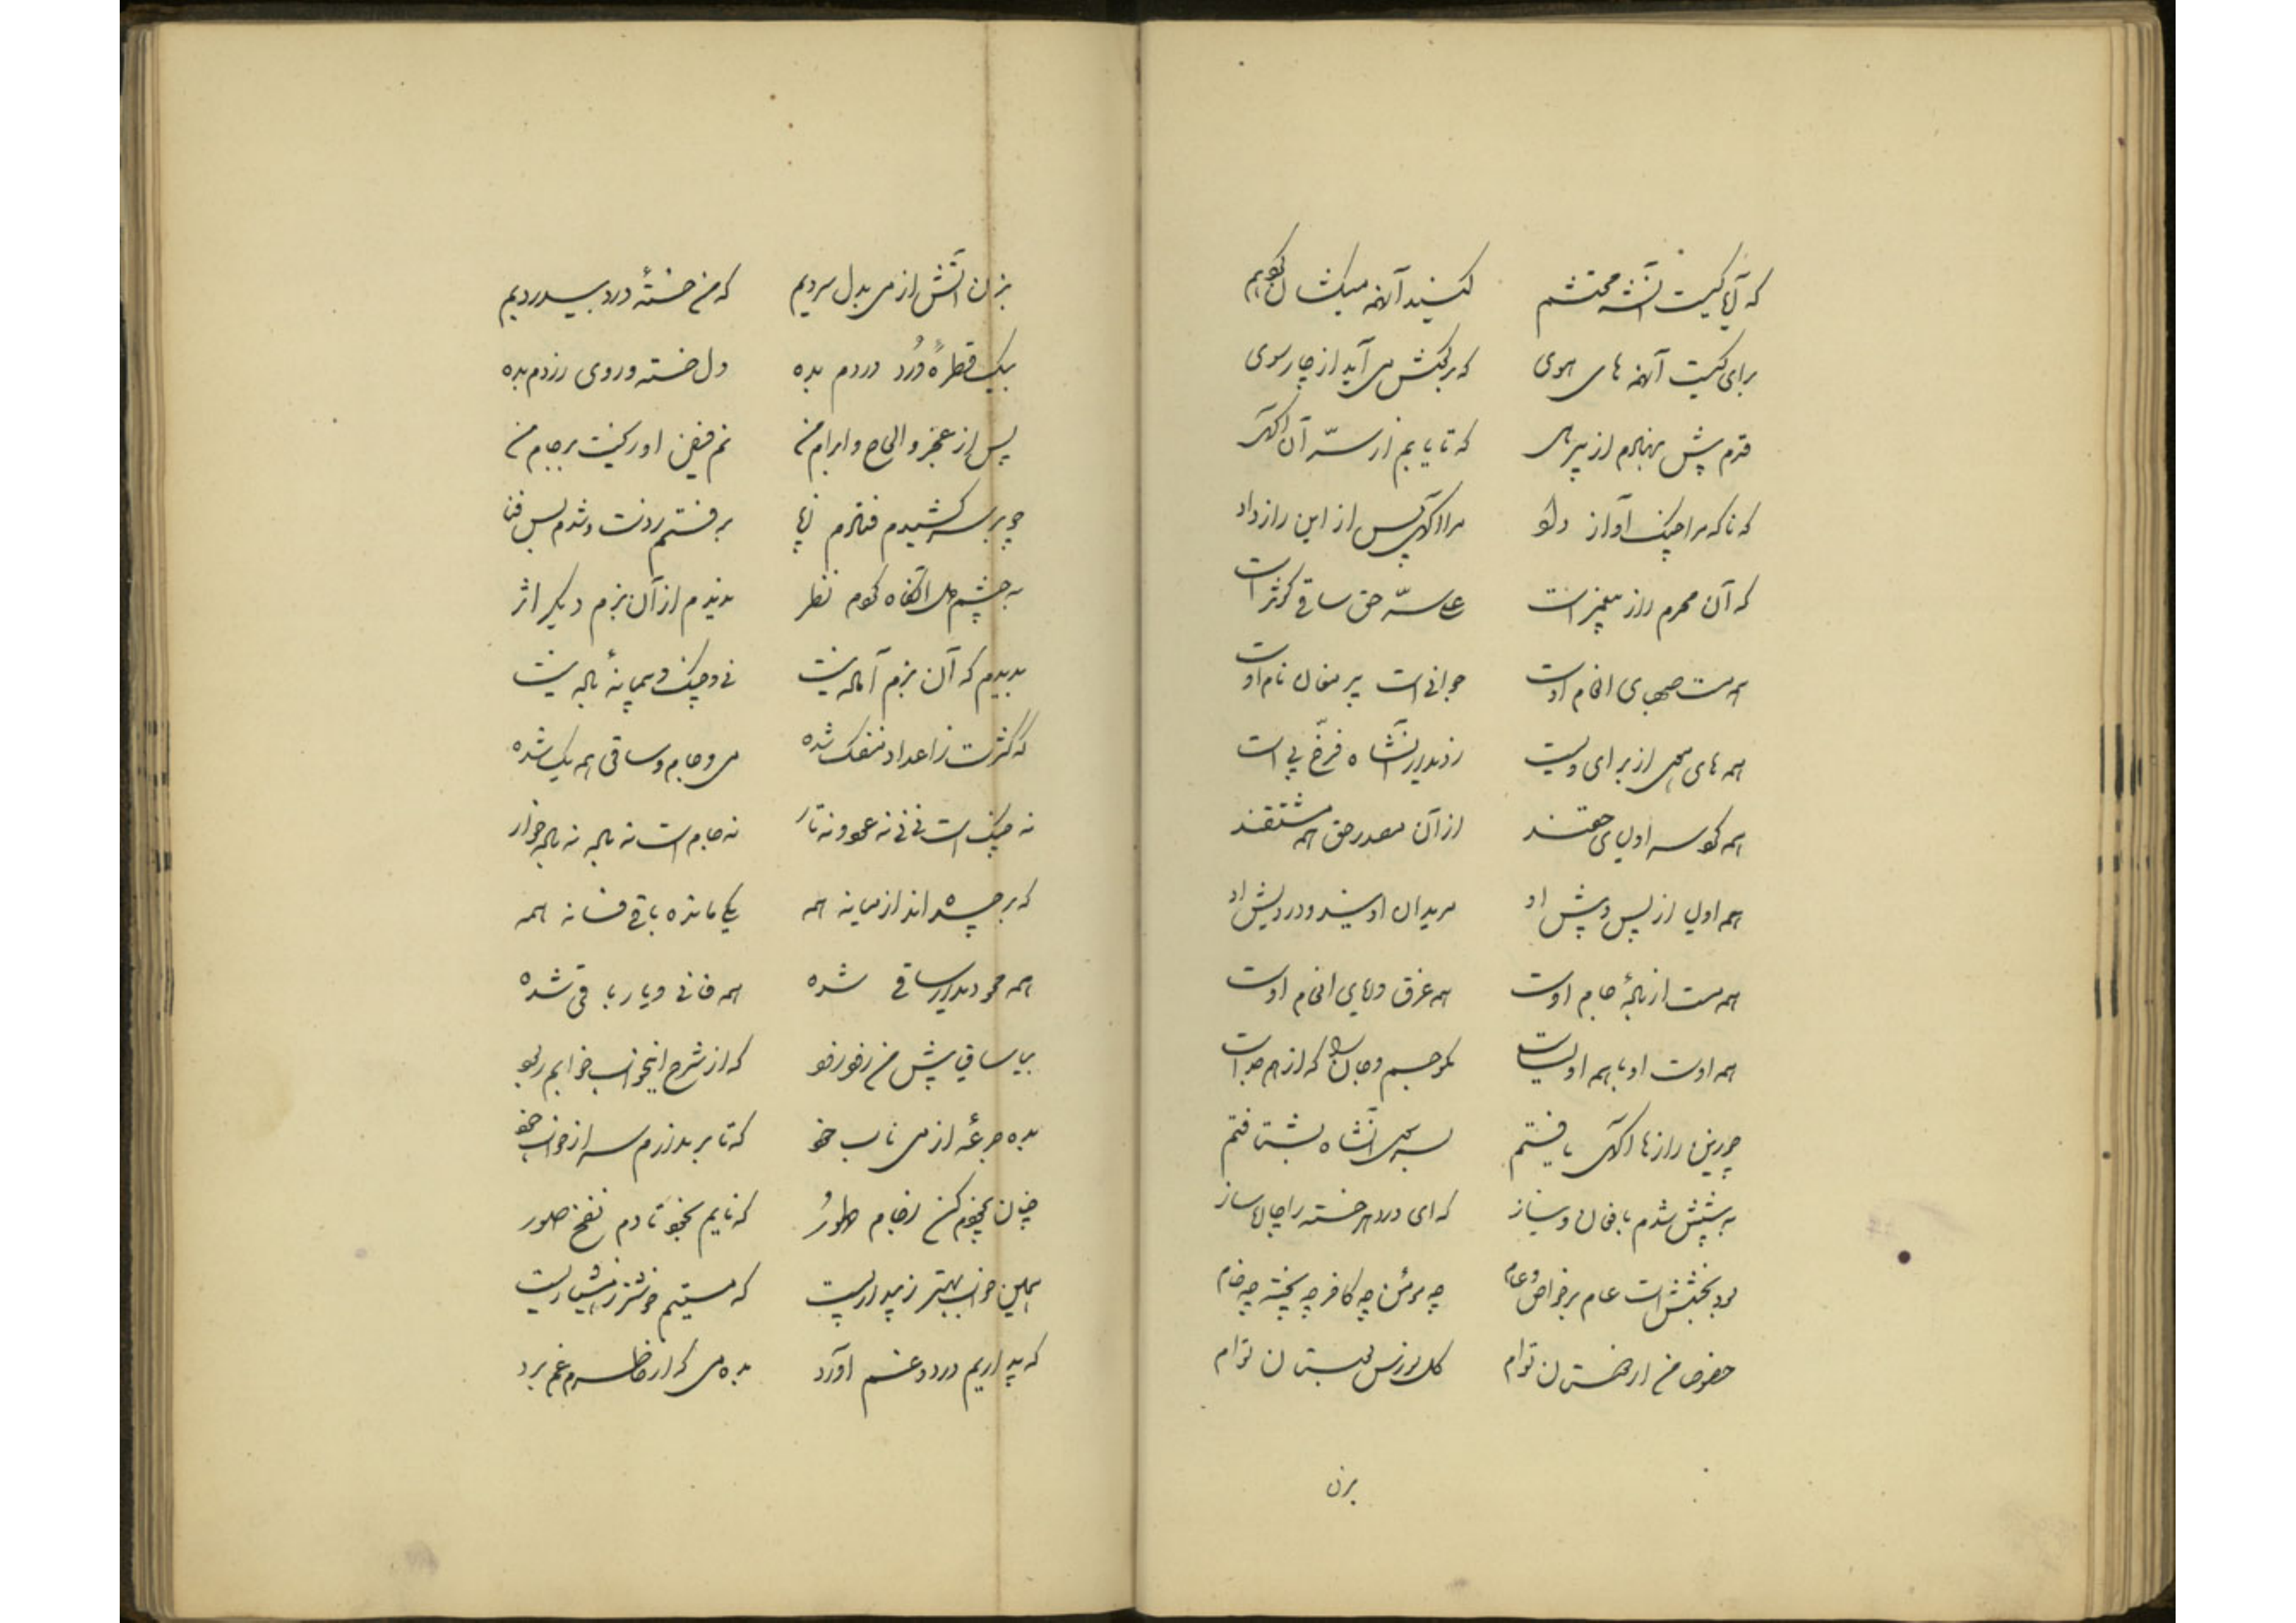 که آیا کیست آن شه محتشم کشیدند آنهمه میکشان
برای کیست آنهمه های هوی که بر بکش می آید از چار سوی
قدم پیش بنهادم از پیرهی که تا یابم از سرّ آن آگهی
که ناگه مرا چنگ آواز داد مرا آگهی پس از این راز داد
که آن محرم راز پیغمبر است علی سرّ حق ساقی کوثر است
همه مست صهبای انعام اوست جوانی است پیر مغان نام اوست
همه های و هی از برای ویست ز دیدار آنشاه فرّخ پی است
همه اولیای حقند از آن مصدر حق همه مشتقند
همه اولیا از پس و پیش او مریدان اویند و درویش او
همه مست از باده جام اوست همه غرق دریای انعام اوست
همه اوست او با همه اولیاست جسم و جان که از هم جداست
چو زین رازها آگهی یافتم بسوی آنشاه بشتافتم
به پیشش شدم با فغان و نیاز که ای درد هر خسته را چاره ساز
بود بخششت عام بر خواص و عوام چه مؤمن چه کافر چه پخته چه خام
خصوصا من از مستان توام گل نورس بستان توام
بزن
بزن آتش از می بدل سردیم که من خستهٔ درد بیدردیم
بیک قطرهٔ دُرد دردم بده دل خسته و روی زردم بده
پس از عجز و الحاح و ابرام من نم فیض او ریخت بر جام من
چو بر سر کشیدم فتادم ز پا برفتم ز دست و شدم پس فنا
به چشم دل آنگاه کردم نظر ندیدم از آن بزم دیگر اثر
بدیدم که آن بزم آماده نیست نی و چنگ و پیمانهٔ باده نیست
که کثرت ز اعداد منفک شده می و جام و ساقی همه یک شده
نه چنگ است نی نی نه عود و نه تار نه جام است نه باده نه باده خوار
که برچیده اند از میانه همه یکی مانده باقی فسانه همه
همه محو دیدار ساقی شده همه فانی و یار باقی شده
بیا ساقی پیش من زود زود که از شرح این خواب خوابم ربود
بده جرعه از می ناب خود که تا بر ندارم سر از خواب خود
چنان بیخودم کن ز جام طهور که نایم بخود تا دم نفخ صور
همین خواب بهتر ز بیداریست که مستیم خوشتر ز هشیاریست
که بیداریم درد و غم آورد بده می که از خاطرم غم برد